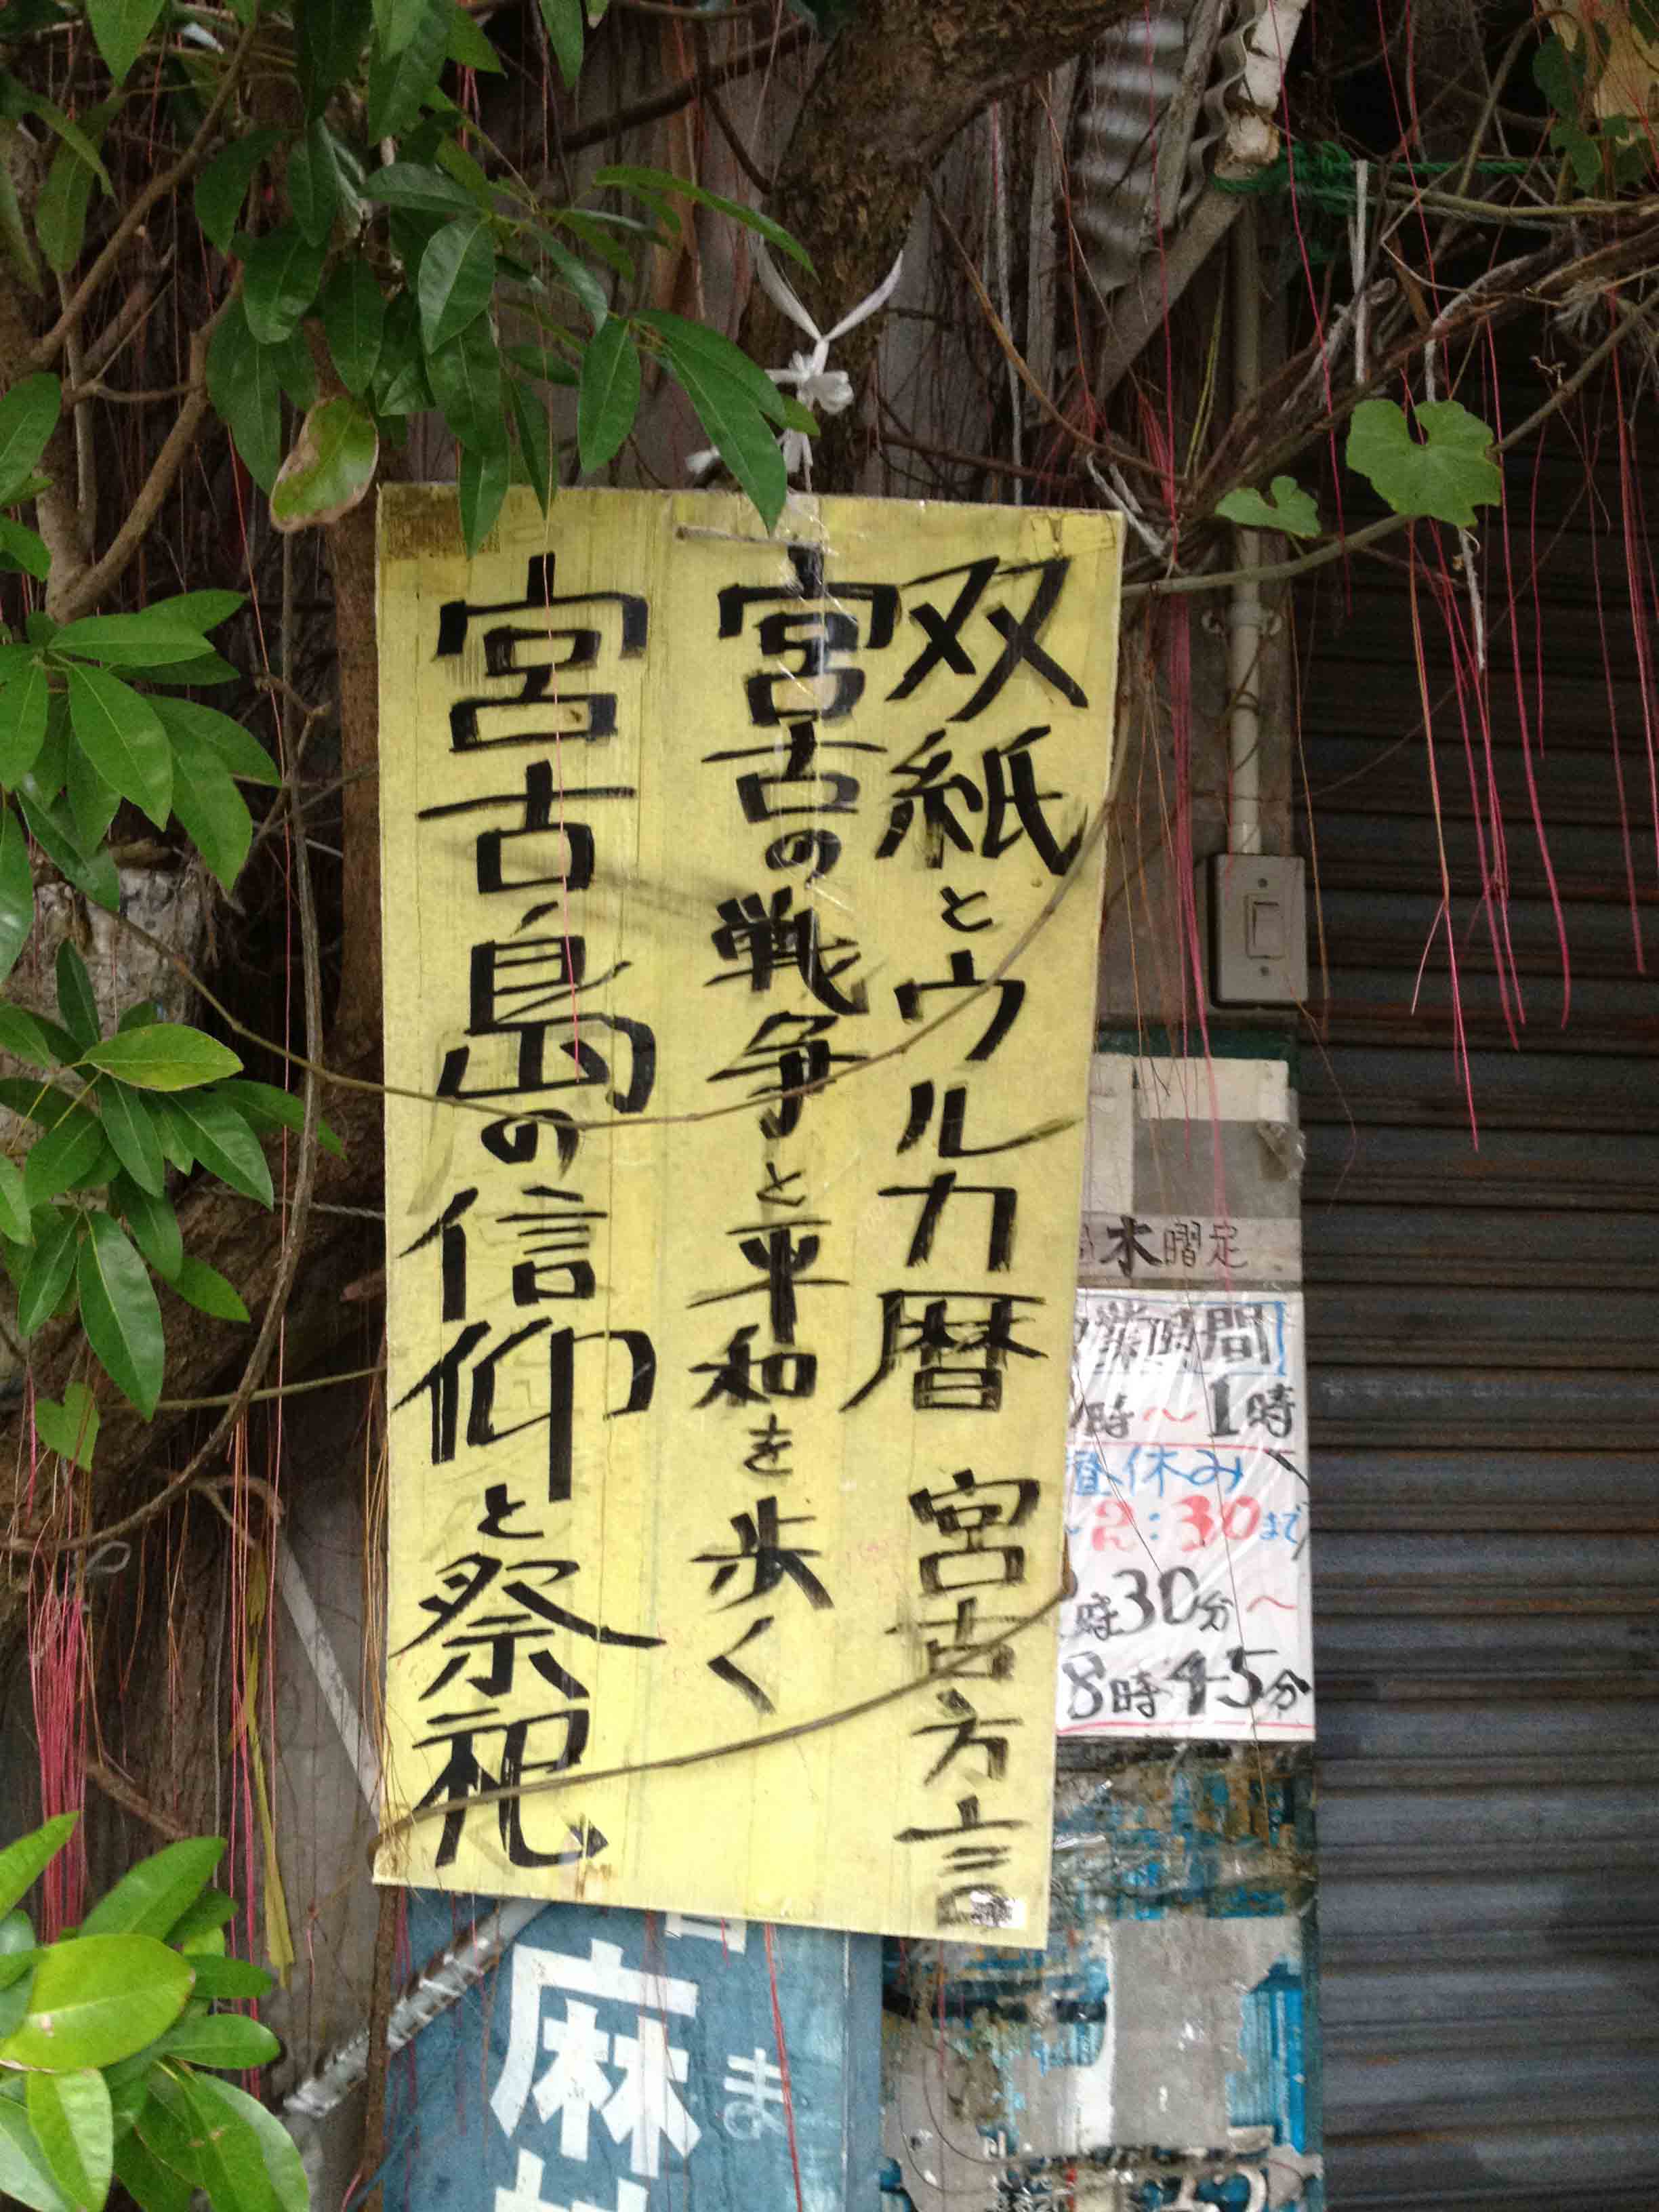 双紙とウルカ暦 宮古方言
宮古の戦争と平和を歩く
宮古島の信仰と祭祀
木曜定
営業時間
時～1時
昼休み
～2:30まで
時30分～
8時45分
麻
ま